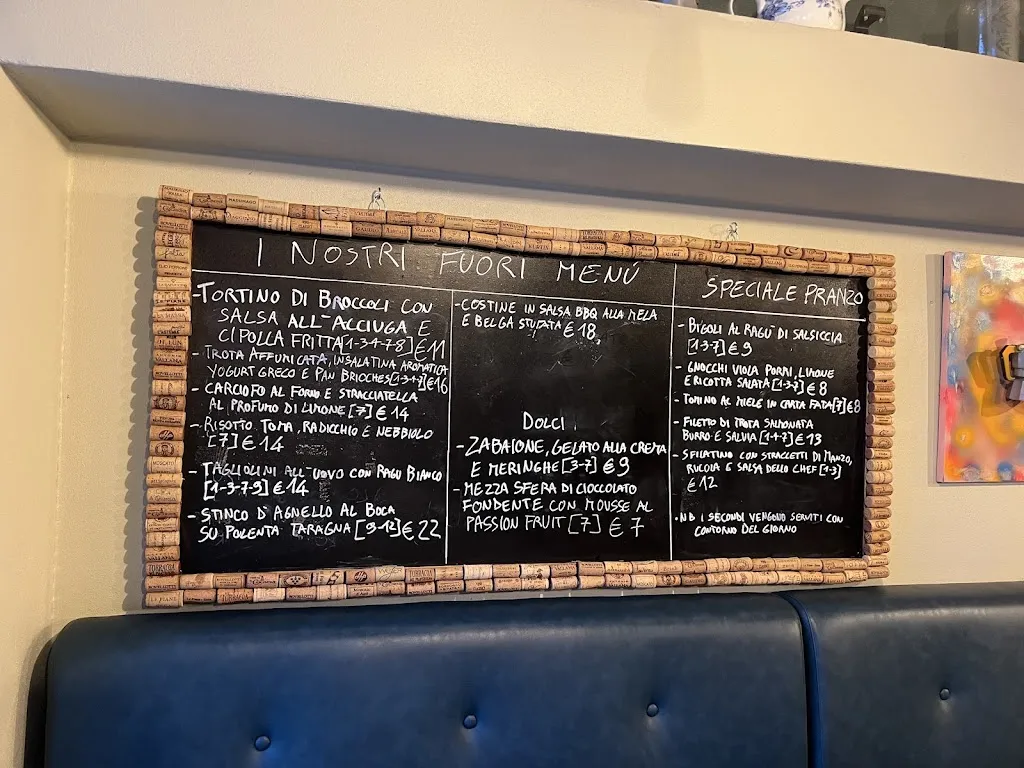 I NOSTRI FUORI MENÚ
- TORTINO DI BROCCOLI CON
SALSA ALL'ACCIUGA E
CIPOLLA FRITTA [1-3-4-7-8] € 11
- TROTA AFFUMICATA, INSALATINA AROMATICA
YOGURT GRECO E PAN BRIOCHES [1-3-4-7] € 16
- CARCIOFO AL FORNO E STRACCIATELLA
AL PROFUMO DI LIMONE [7] € 14
- RISOTTO TOMA, RADICCHIO E NEBBIOLO
[7] € 14
- TAGLIOLINI ALL'UOVO CON RAGU BIANCO
[1-3-7-9] € 14
- STINCO D'AGNELLO AL BOCA
SU POLENTA TARAGNA [9-12] € 22
- COSTINE IN SALSA BBQ ALLA MELA
E BELGA STUFATA € 18,
DOLCI
- ZABAIONE, GELATO ALLA CREMA
E MERINGHE [3-7] € 9
- MEZZA SFERA DI CIOCCOLATO
FONDENTE CON MOUSSE AL
PASSION FRUIT [7] € 7
SPECIALE PRANZO
- BIGOLI AL RAGU' DI SALSICCIA
[1-3-7] € 9
- GNOCCHI VIOLA PORRI, LIMONE
E RICOTTA SALATA [1-3-7] € 8
- TOMINO AL MIELE IN CARTA FATA [7] € 8
- FILETTO DI TROTA SALMONATA
BURRO E SALVIA [1-4-7] € 13
- SFILATINO CON STRACCETTI DI MANZO,
RUCOLA E SALSA DELLO CHEF [1-3]
€ 12
• NB I SECONDI VENGONO SERVITI CON
CONTORNO DEL GIORNO